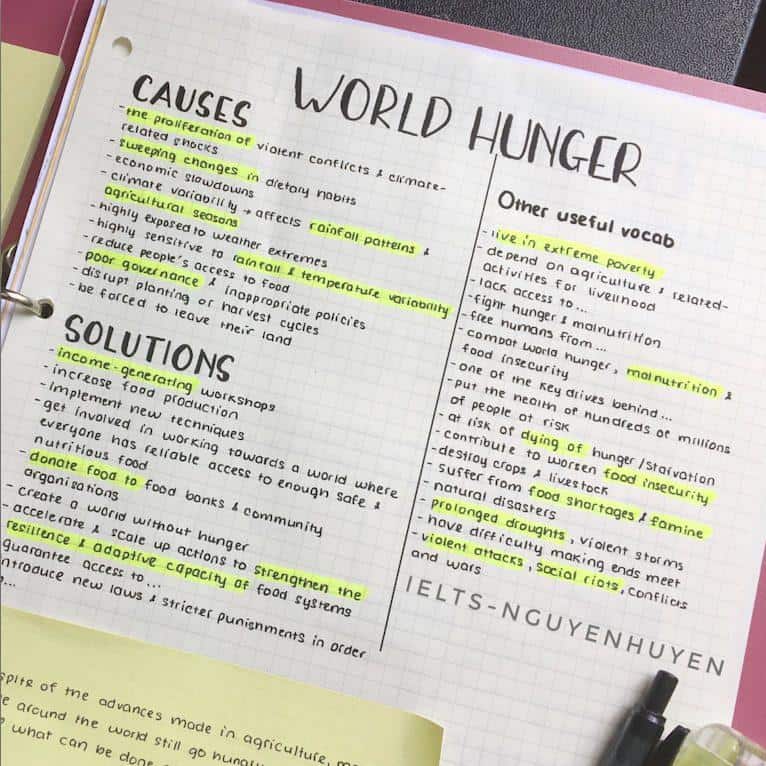 WORLD HUNGER
CAUSES
- the proliferation of violent conflicts & climate-
related shocks
- sweeping changes in dietary habits
- economic slowdowns
- climate variability → affects rainfall patterns &
agricultural seasons
- highly exposed to weather extremes
- highly sensitive to rainfall & temperature variability
- reduce people's access to food
- poor governance & inappropriate policies
- disrupt planting or harvest cycles
- be forced to leave their land
SOLUTIONS
- income-generating workshops
- increase food production
- implement new techniques
- get involved in working towards a world where
everyone has reliable access to enough safe &
nutritious food
- donate food to food banks & community
organisations
- create a world without hunger
- accelerate & scale up actions to strengthen the
resilience & adaptive capacity of food systems
guarantee access to...
ntroduce new laws & stricter punishments in order
...
Other useful vocab
- live in extreme poverty
- depend on agriculture & related-
activities for livelihood
- lack access to...
- fight hunger & malnutrition
- free humans from...
- combat world hunger, malnutrition &
food insecurity
- one of the key drives behind...
- put the health of hundreds of millions
of people at risk
- at risk of dying of hunger/starvation
- contribute to worsen food insecurity
- destroy crops & livestock
- suffer from food shortages & famine
- natural disasters
- prolonged droughts, violent storms
- have difficulty making ends meet
- violent attacks, social riots, conflicts
and wars
IELTS-NGUYENHUYEN
spite of the advances made in agriculture,
around the world still go
what can be done